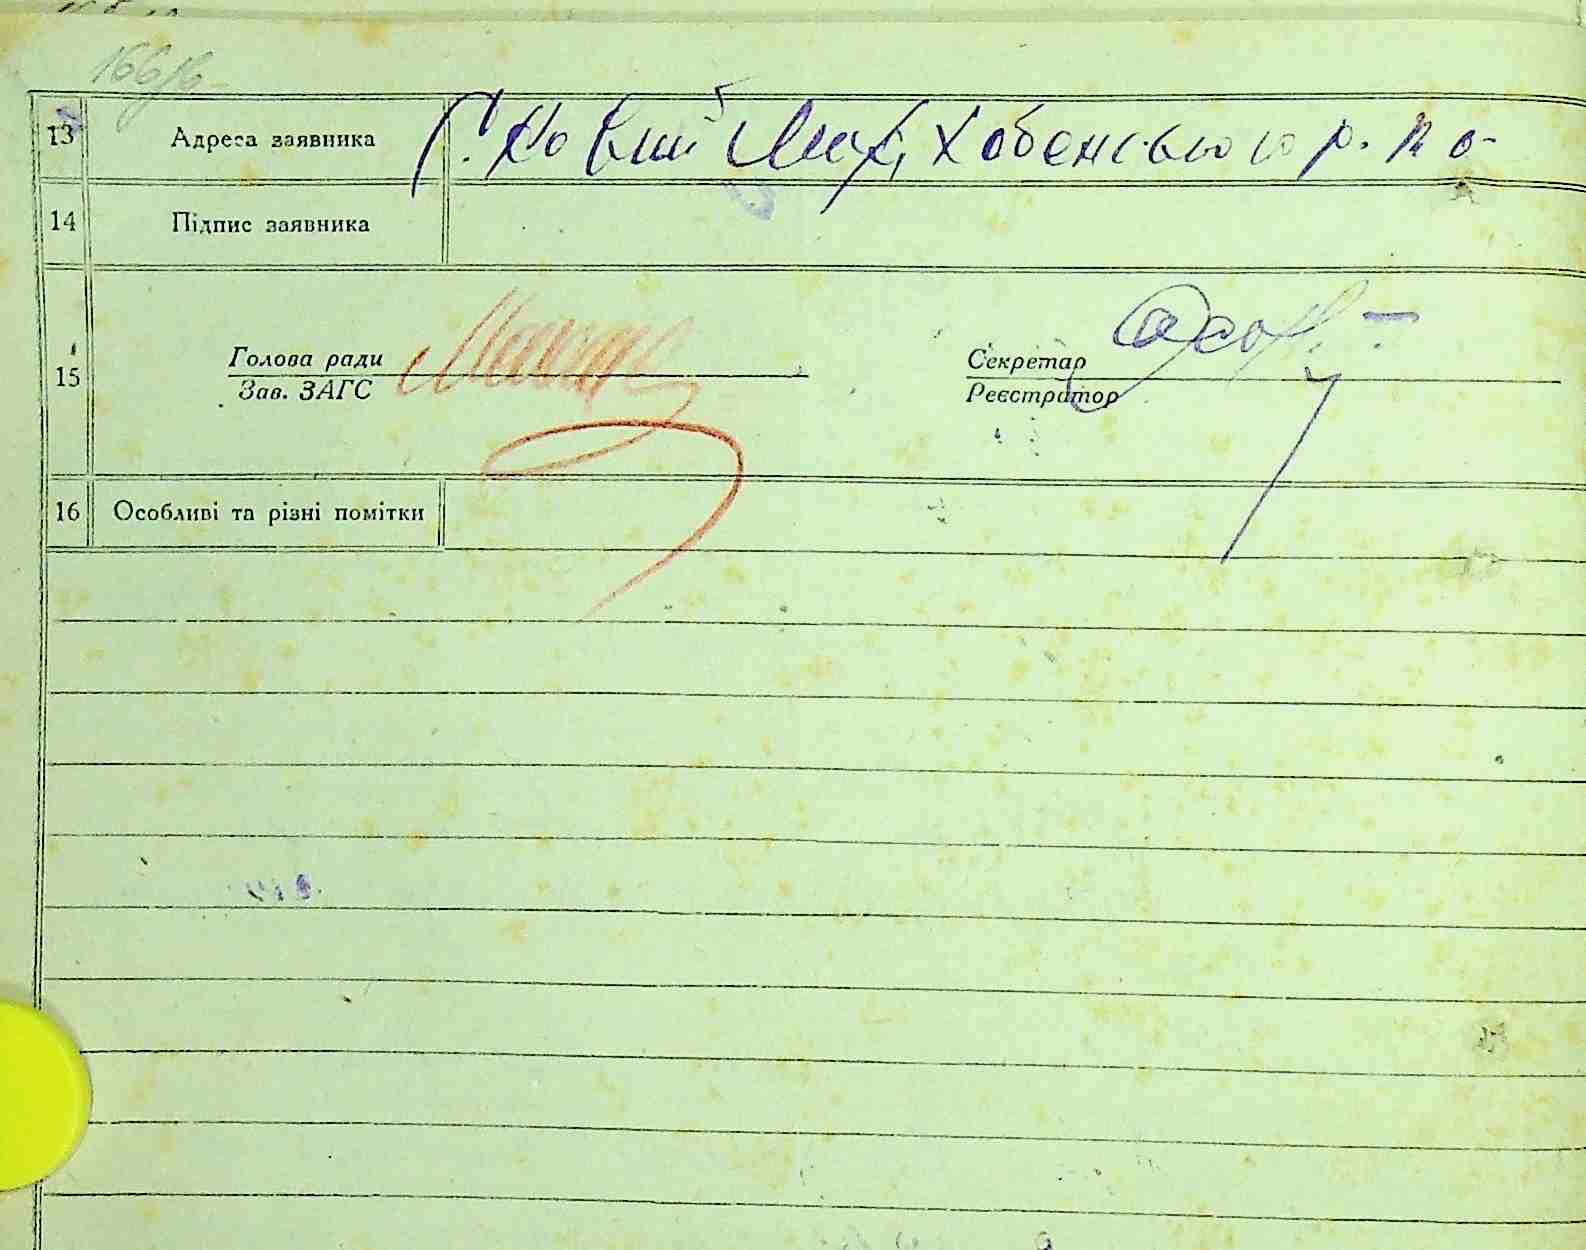 13 Адреса заявника С. Новий Мир, Хабенського р. по-
14 Підпис заявника
15
Голова ради
Зав. ЗАГС
Секретар
Реєстратор
16 Особливі та різні помітки